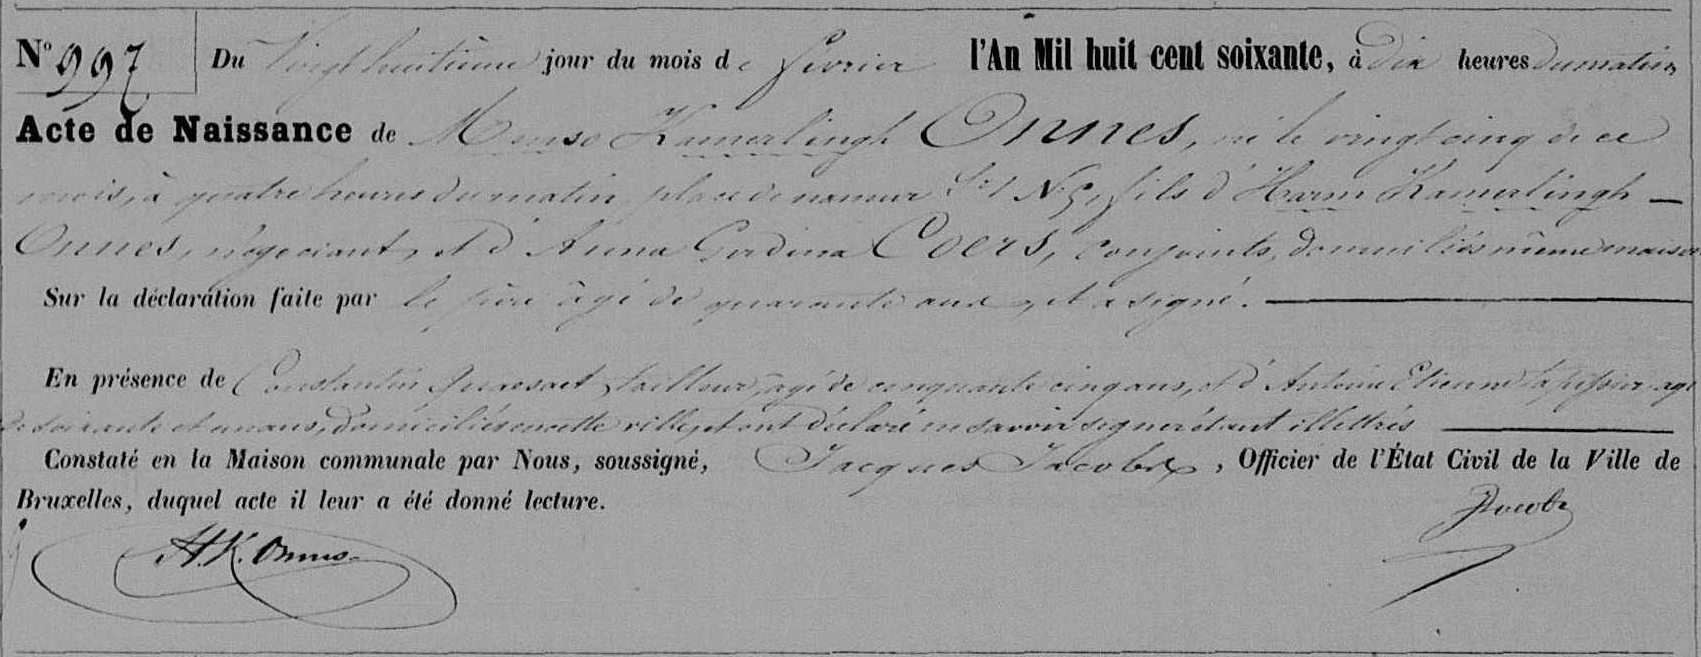 N° 997 Du Vingt huitième jour du mois de février l'An Mil huit cent soixante, à dix heures du matin,
Acte de Naissance de Menso Kamerlingh Onnes, né le vingt cinq de ce
mois, à quatre heures du matin place de namur N. 5, fils d'Harm Kamerlingh –
Onnes, négociant, et d'Anna Gerdina Coers, conjoints, domiciliés même maison
Sur la déclaration faite par le père âgé de quarante ans, et a signé.
En présence de Constantin tailleur, âgé de cinquante cinq ans, et d'Antoine Etienne agé
de soixante et un ans, domiciliés en cette ville, et ont déclaré ne savoir signer étant illettrés
Constaté en la Maison communale par Nous, soussigné, Jacques Jacobs, Officier de l'État Civil de la Ville de
Bruxelles, duquel acte il leur a été donné lecture.
JJacobs
H.K. Onnes